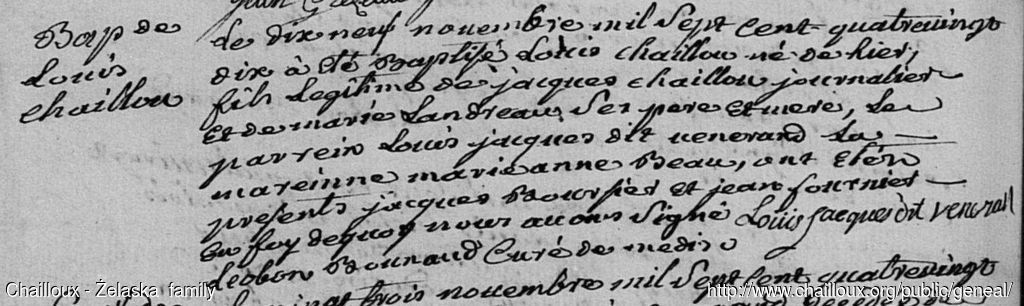 Bap de
Louis
chaillou
Le dix neuf novembre mil Sept Cent quatrevingt
dix à été Baptisé Louis chaillou né de hier,
fils Legitime de jacques chaillou journalier
Et de marie Landreau Ses pere Et mere, Le
parrein Louis jacques dit venerand La
mareinne marie anne Beau, ont Eté
presents jacques Boursier et jean fournier
En foy de quoy nous avons Signé Louis jacques dit venerand
Curé de
novembre mil Sept Cent quatrevingt
Chailloux - Żelaska family
http://www.chailloux.org/public/geneal/